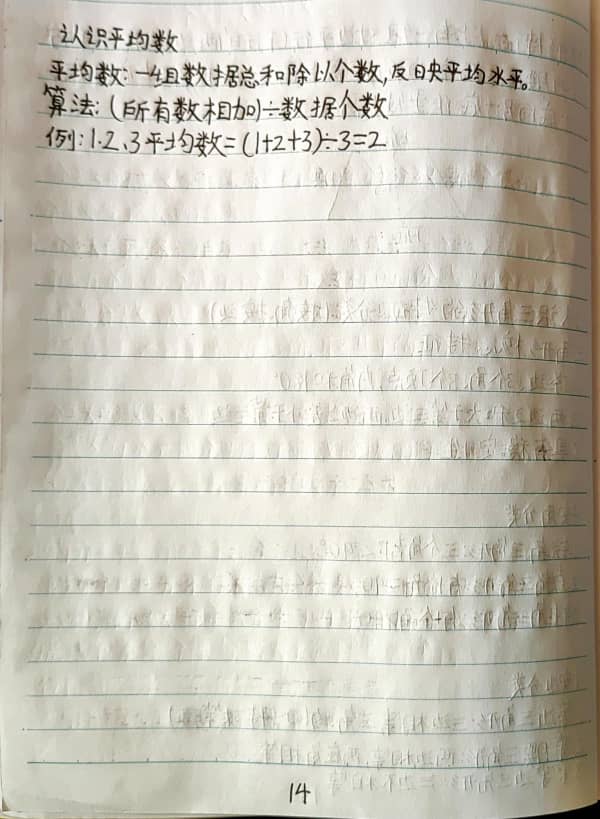 认识平均数
平均数:一组数据总和除以个数,反映平均水平。
算法:(所有数相加)÷数据个数
例:1.2、3平均数=(1+2+3)÷3=2
14